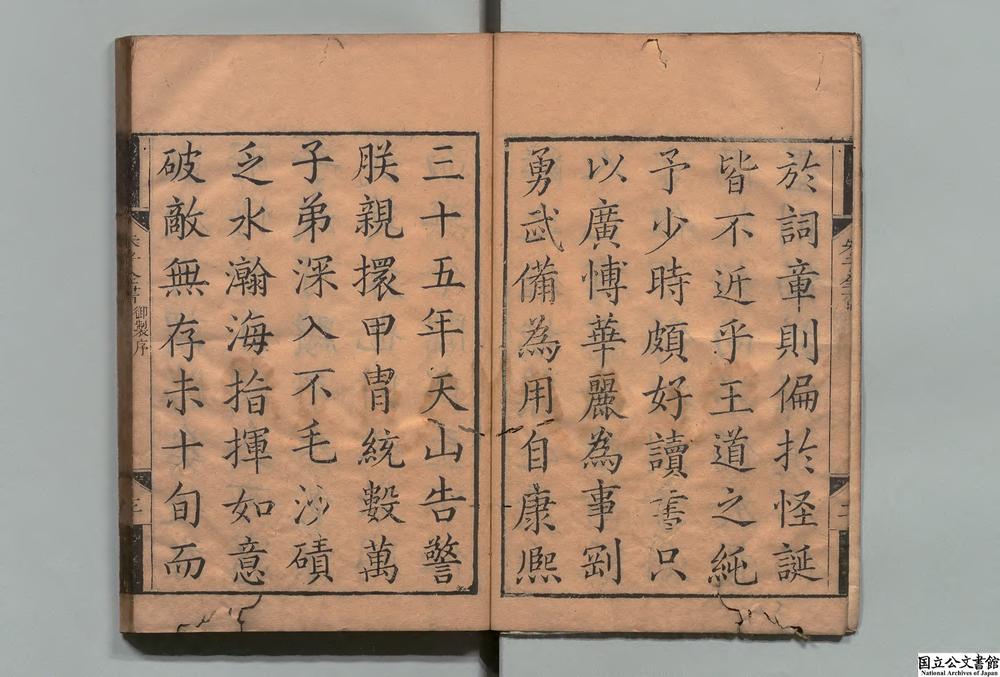 於詞章則偏於怪誕
皆不近乎王道之純
予少時頗好讀書只
以廣博華麗為事剛
勇武備為用自康熙
三十五年天山告警
朕親擐甲冑統數萬
子弟深入不毛沙磧
乏水瀚海指揮如意
破敵無存未十旬而
御製序
国立公文書館
National Archives of Japan